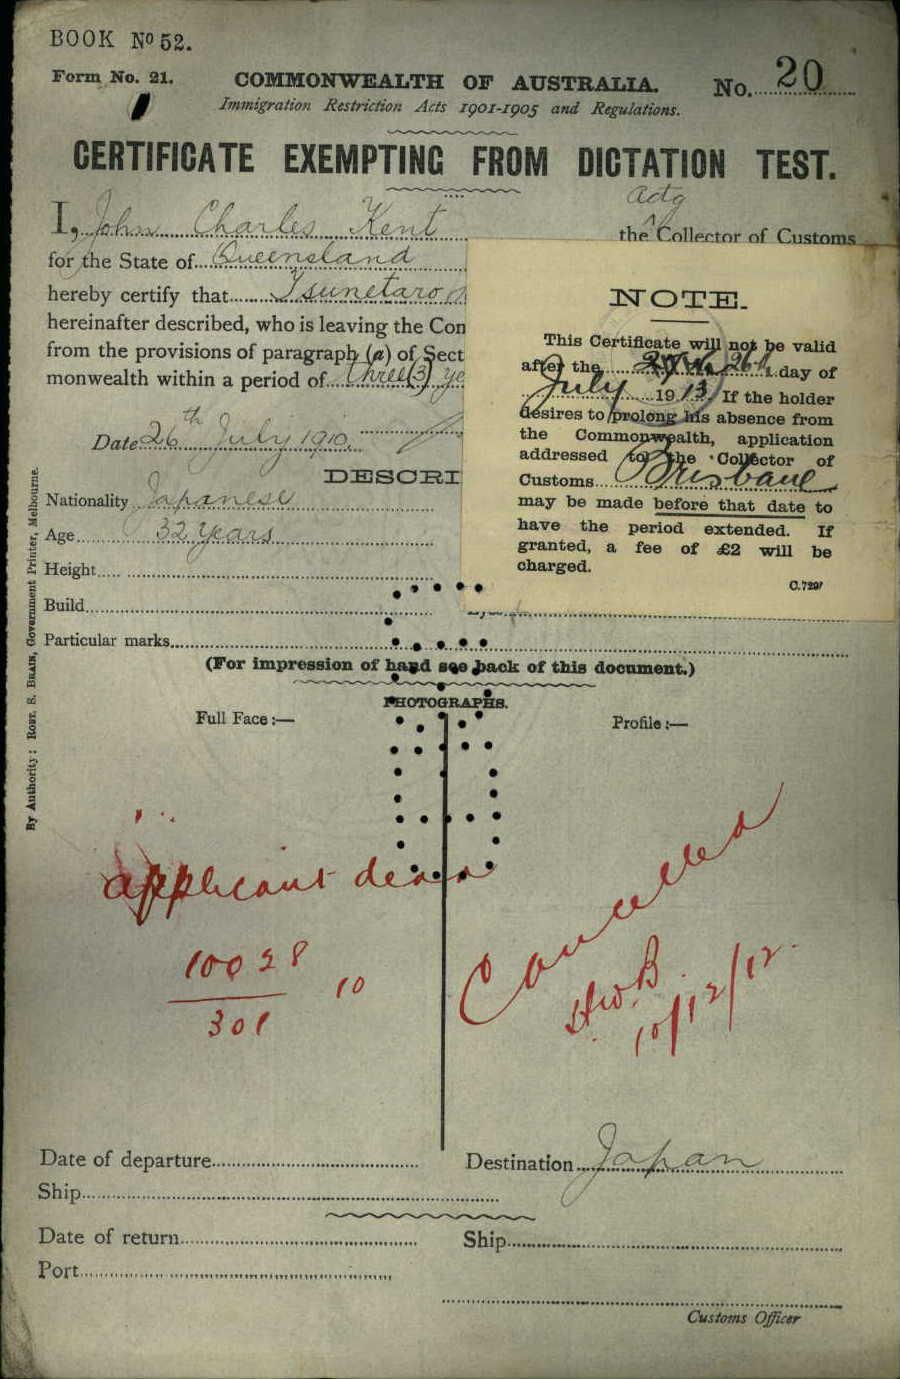 BOOK No 52.
Form No. 21.
COMMONWEALTH OF AUSTRALIA.
No. 20
Immigration Restriction Acts 1901-1905 and Regulations.
CERTIFICATE EXEMPTING FROM DICTATION TEST.
actg
I, John Charles Kent the Collector of Customs
for the State of Queensland
hereby certify that Tsunetaro
hereinafter described, who is leaving the Con
from the provisions of paragraph (a) of Sect
monwealth within a period of three (3) ye
Date 26th July 1910.
DESCRI
Nationality Japanese
Age 32 years
Height
Build
Particular marks
NOTE.
This Certificate will not be valid
after the 26th day of
July 1913. If the holder
desires to prolong his absence from
the Commonwealth, application
addressed to the Collector of
Customs Brisbane
may be made before that date to
have the period extended. If
granted, a fee of £2 will be
charged.
C.7297
(For impression of hand see back of this document.)
PHOTOGRAPHS.
Full Face:—
Profile:—
By Authority: ROBT. S. BRAIN, Government Printer, Melbourne.
applicant dead
10028
301
10
Cancelled
H.W.B.
10/12/12.
Date of departure
Destination Japan
Ship
Date of return
Ship
Port
Customs Officer